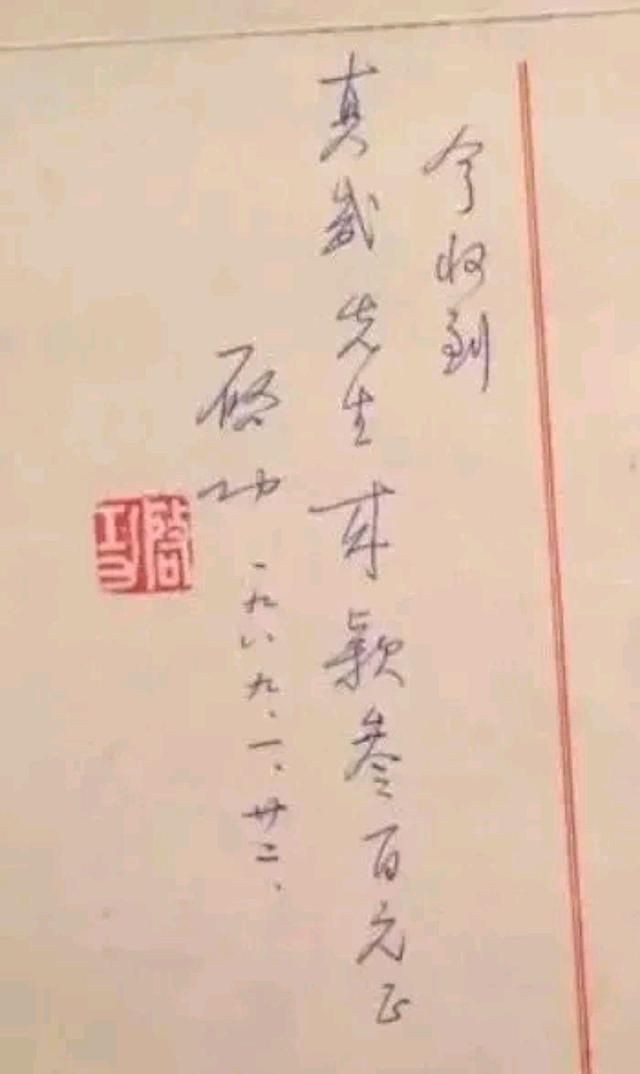 今收到
真 先生 款叁百元正
啓功 一九八九、一、廿二、
啓功